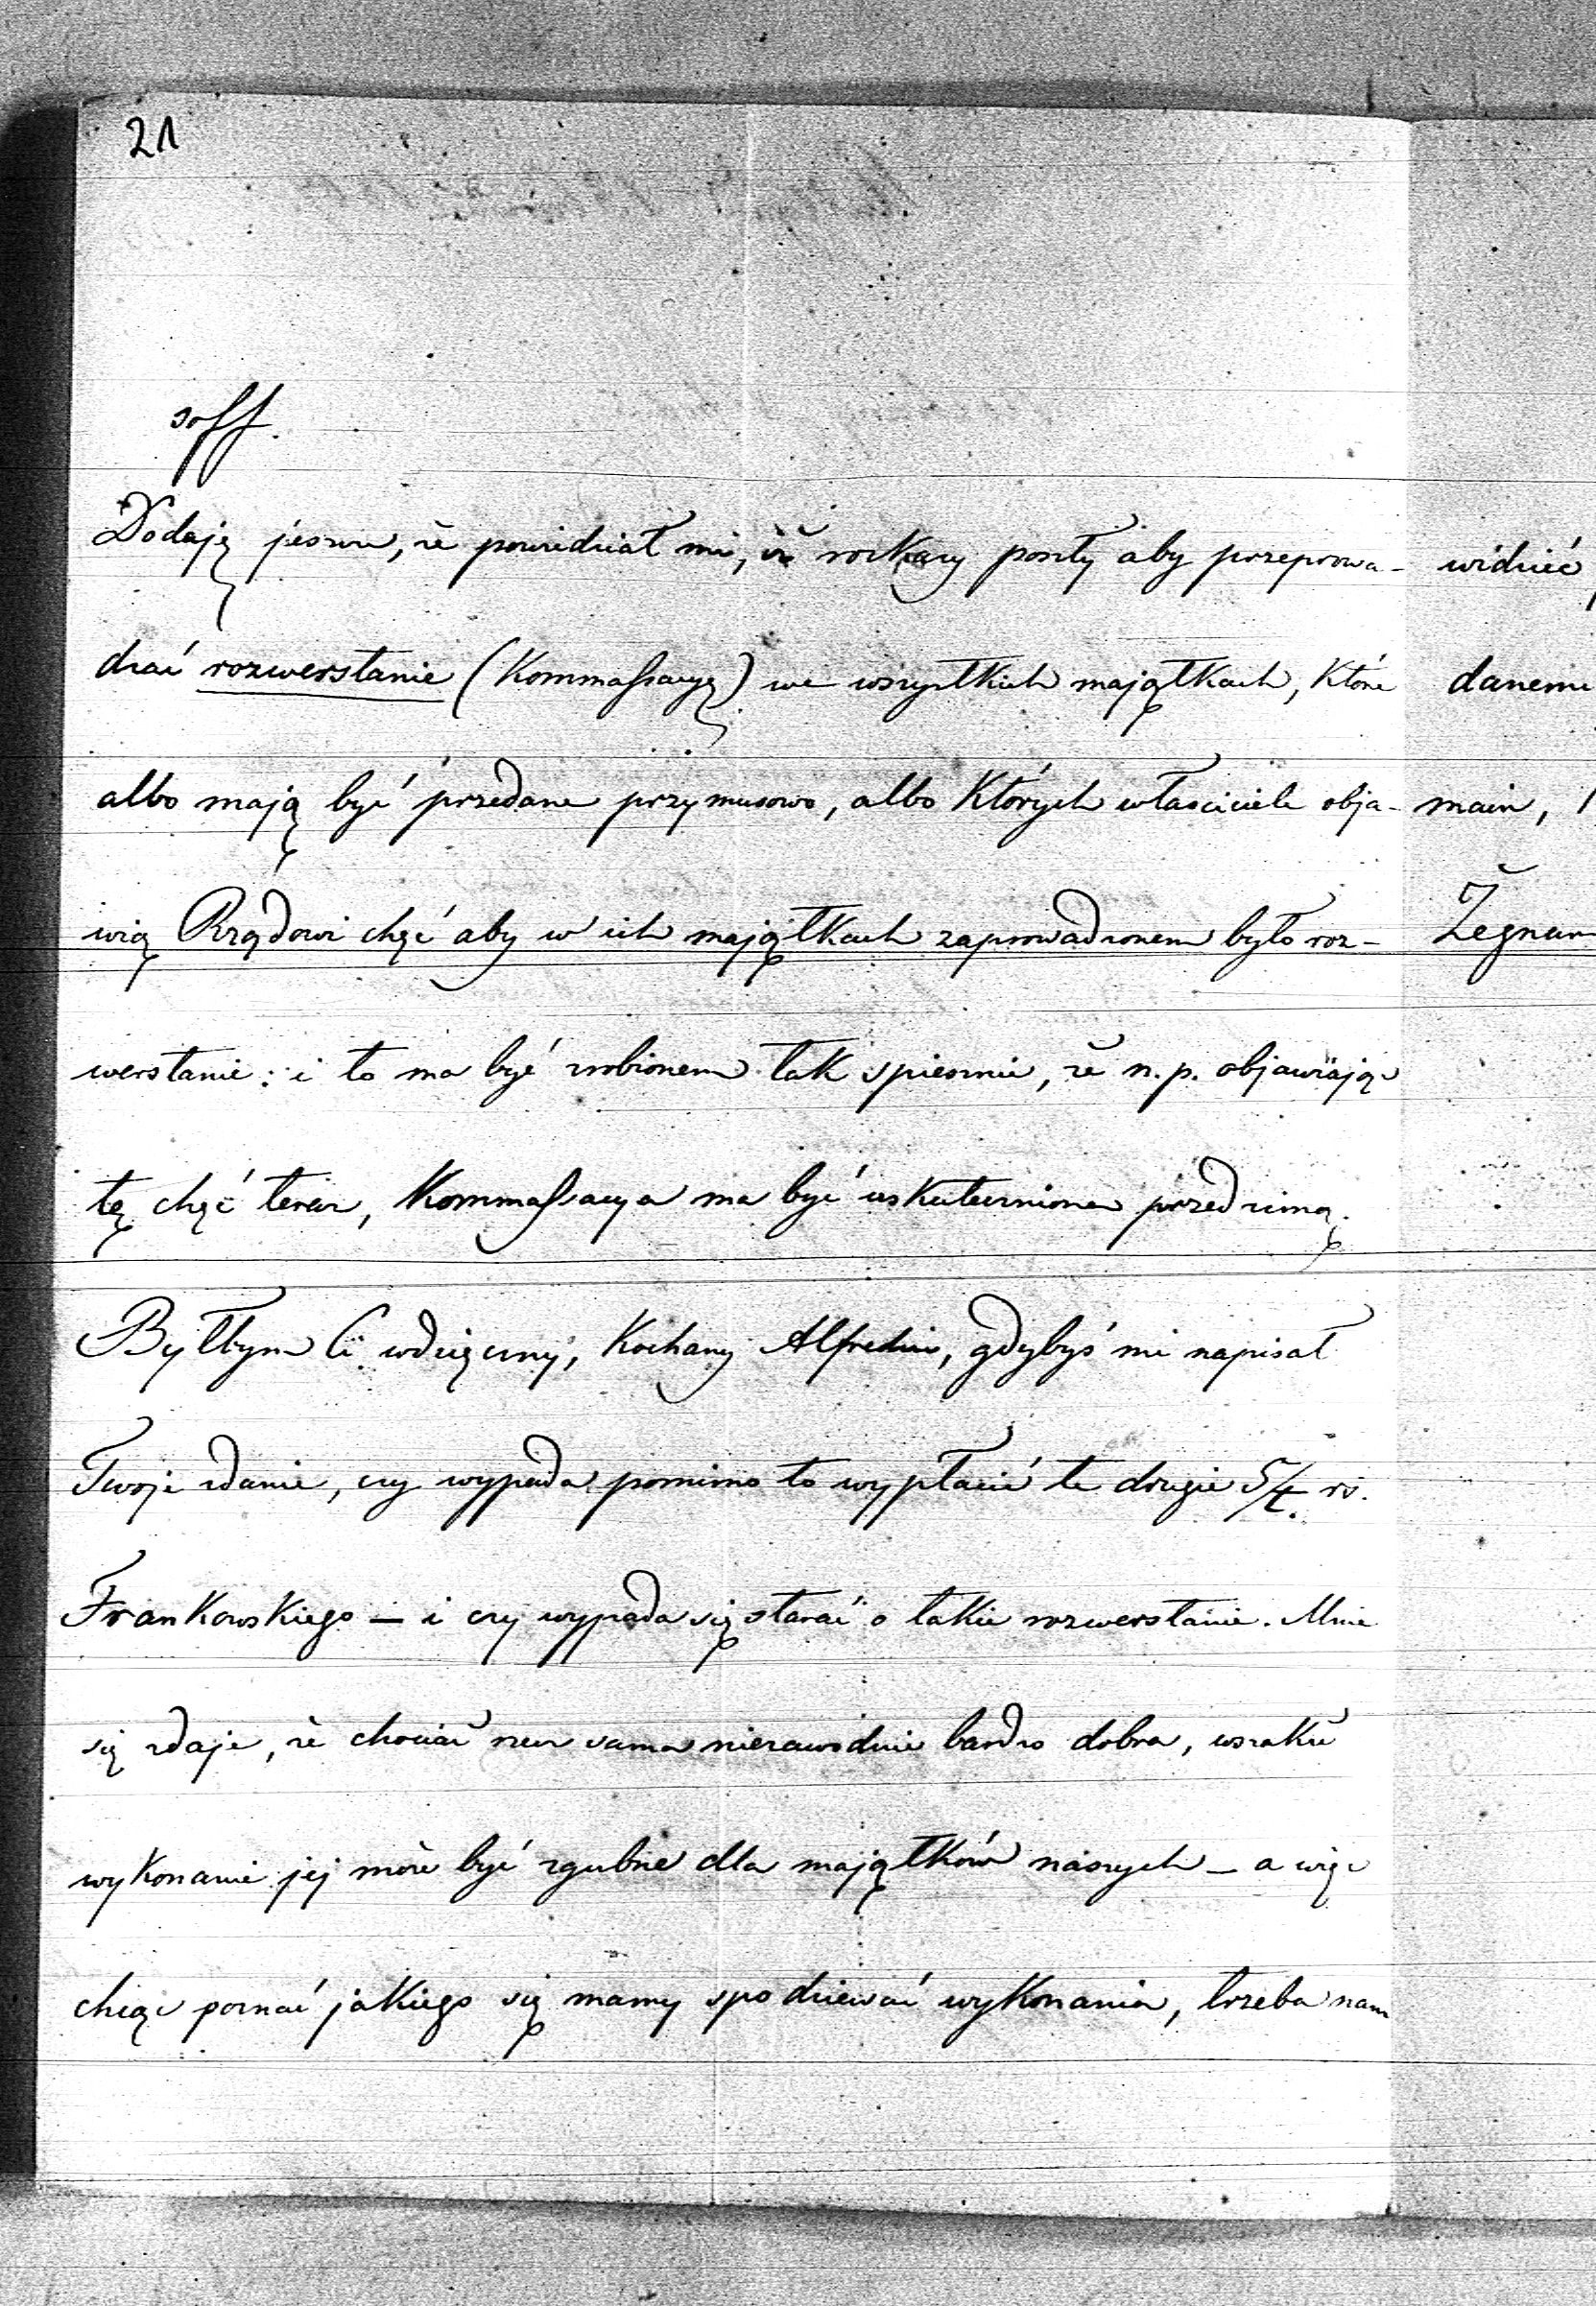 21
soff.
Dodaję jeszcze, że powiedział mi, iż rozkazy poszły aby przeprowa-
dzać rozwerstanie (Kommassacyę) we wszystkich majątkach, które
albo mają być przedane przymusowo, albo których właściciele obja-
wią Rządowi chęć aby w ich majątkach zaprowadzonem było roz-
werstanie: i to ma być zrobionem tak spiesznie, że n.p. objawiając
tę chęć teraz, Kommassacya ma być uskuteczniona przed zimą.
Byłbym Ci wdzięczny, Kochany Alfredzie, gdybyś mi napisał
Twoje zdanie, czy wypada pomimo to wypłacić te drugie 5/t. rs.
Frankowskiego — i czy wypada się starać o takie rozwerstanie. Mnie
się zdaje, że chociaż rzecz sama niezawodnie bardzo dobra, wszakże
wykonanie jej może być zgubne dla majątków naszych — a więc
chcąc poznać jakiego się mamy spodziewać wykonania, trzeba nam
widzieć
danemi
main,
Żegnam